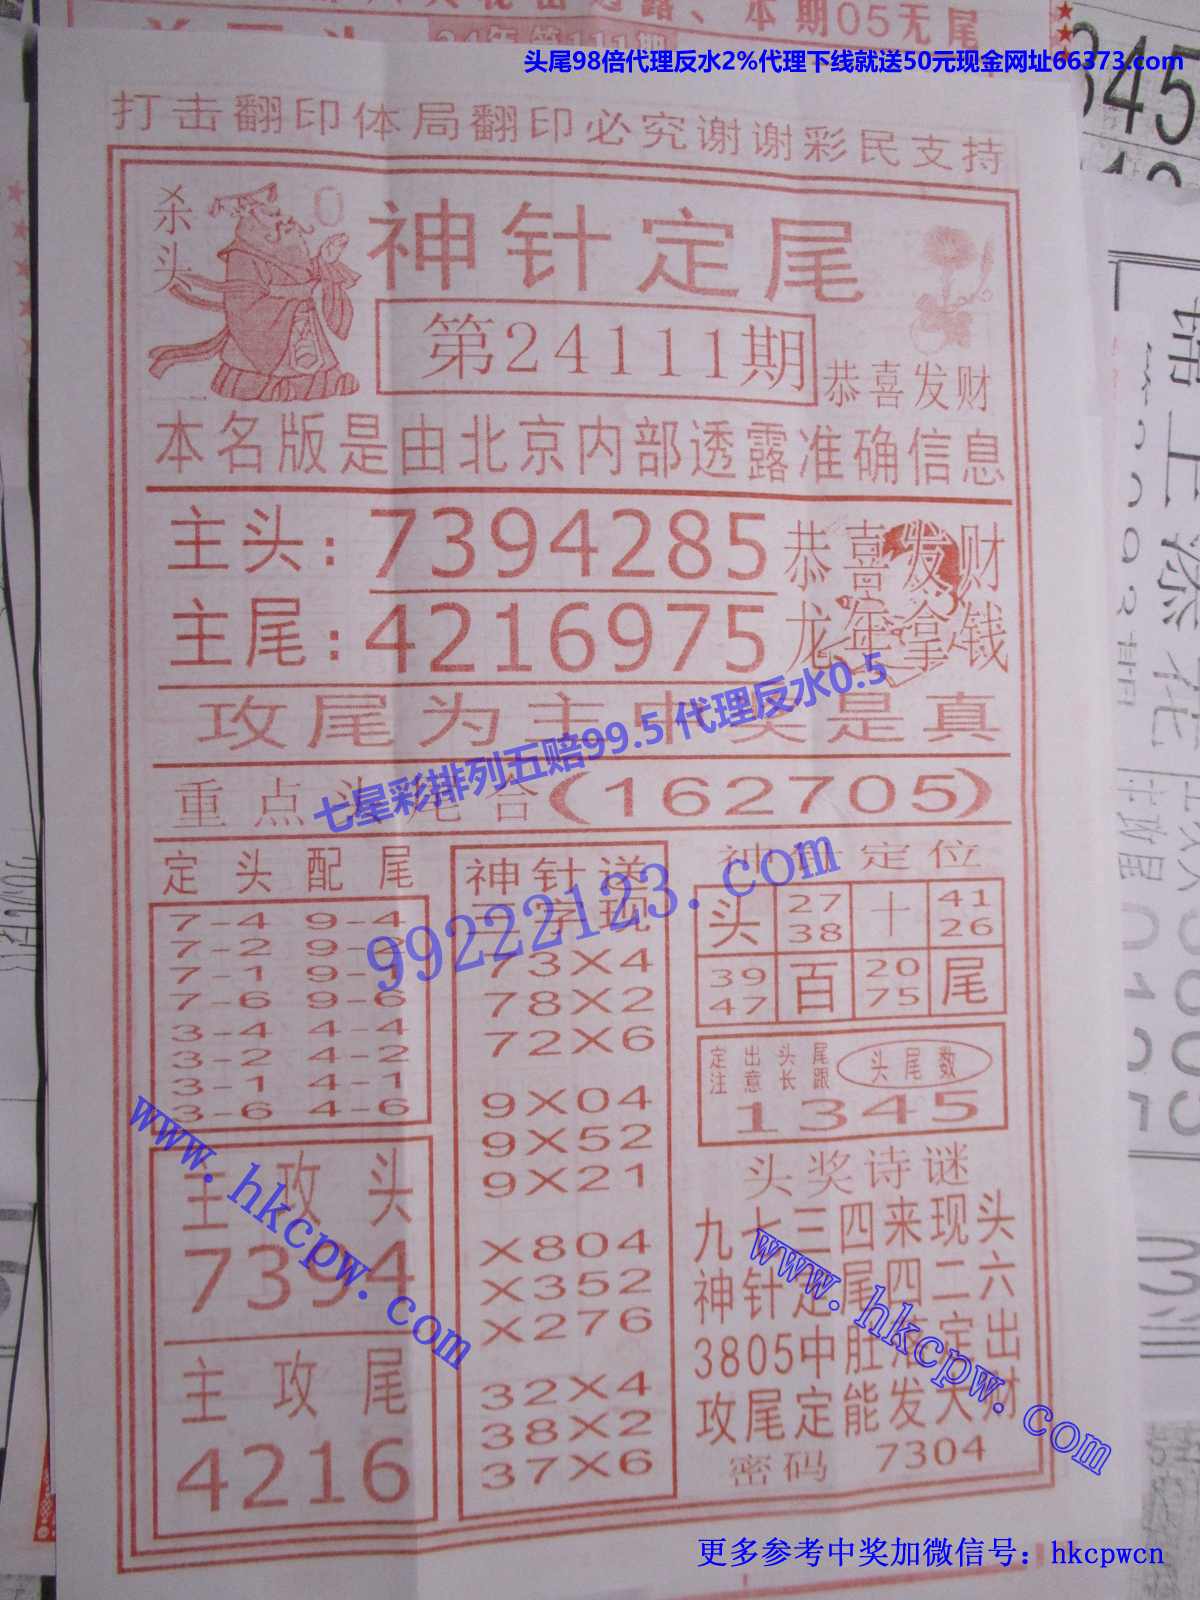 本期05无尾
24年第111期
头尾98倍代理反水2%代理下线就送50元现金网址66373.com
打击翻印体局翻印必究谢谢彩民支持
杀头
0
神针定尾
第24111期
恭喜发财
本名版是由北京内部透露准确信息
主头:7394285
恭喜发财
主尾:4216975
龙年拿钱
攻尾为主中奖是真
七星彩排列五赔99.5 代理反水0.5
重点头尾合(162705)
定头配尾
7-4 9-4
7-2 9-2
7-1 9-1
7-6 9-6
3-4 4-4
3-2 4-2
3-1 4-1
3-6 4-6
主攻头
7394
主攻尾
4216
神针送
三字现
73X4
78X2
72X6
9X04
9X52
9X21
X804
X352
X276
32X4
38X2
37X6
99222123.com
神针定位
头 27 38 十 41 26
39 47 百 20 75 尾
定出头尾
注意长跟
头尾数
1345
头奖诗谜
九七三四来现头
神针定尾四二六
3805中肚落定出
攻尾定能发大财
密码 7304
www.hkcpw.com
www.hkcpw.com
更多参考中奖加微信号：hkcpwcn